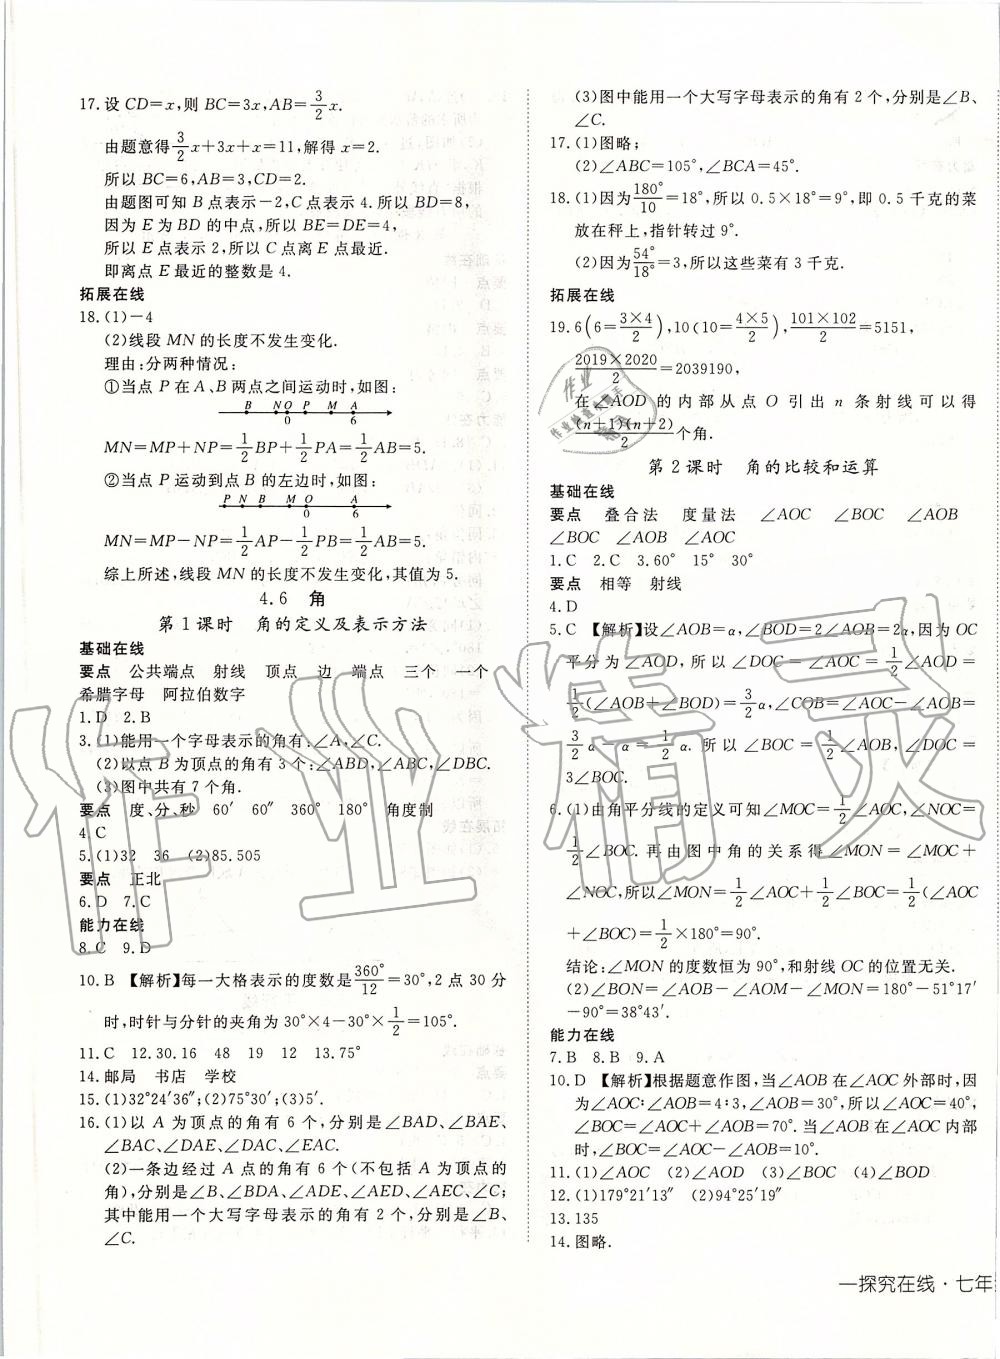 17.设 CD=x,则 BC=3x,AB=3/2x.
由题意得3/2x+3x+x=11,解得 x=2.
所以 BC=6,AB=3,CD=2.
由题图可知 B 点表示-2,C 点表示 4.所以 BD=8,
因为 E 为 BD 的中点,所以 BE=DE=4,
所以 E 点表示 2,所以 C 点离 E 点最近.
即离点 E 最近的整数是 4.
拓展在线
18.(1)-4
(2)线段 MN 的长度不发生变化.
理由:分两种情况:
①当点 P 在 A、B 两点之间运动时,如图:
B N O P M A
0 6
MN=MP+NP=1/2BP+1/2PA=1/2AB=5.
②当点 P 运动到点 B 的左边时,如图:
P N B M O A
0 6
MN=MP-NP=1/2AP-1/2PB=1/2AB=5.
综上所述,线段 MN 的长度不发生变化,其值为 5.
4.6 角
第 1 课时 角的定义及表示方法
基础在线
要点 公共端点 射线 顶点 边 端点 三个 一个
希腊字母 阿拉伯数字
1.D 2.B
3.(1)能用一个字母表示的角有:∠A,∠C.
(2)以点 B 为顶点的角有 3 个:∠ABD,∠ABC,∠DBC.
(3)图中共有 7 个角.
要点 度、分、秒 60′ 60″ 360° 180° 角度制
4.C
5.(1)32 36 (2)85.505
要点 正北
6.D 7.C
能力在线
8.C 9.D
10.B 【解析】每一大格表示的度数是360°/12=30°,2 点 30 分
时,时针与分针的夹角为 30°×4-30°×1/2=105°.
11.C 12.30.16 48 19 12 13.75°
14.邮局 书店 学校
15.(1)32°24′36″;(2)75°30′;(3)5′.
16.(1)以 A 为顶点的角有 6 个,分别是∠BAD、∠BAE、
∠BAC、∠DAE、∠DAC、∠EAC.
(2)一条边经过 A 点的角有 6 个(不包括 A 为顶点的
角),分别是∠B、∠BDA、∠ADE、∠AED、∠AEC、∠C;
其中能用一个大写字母表示的角有 2 个,分别是∠B、
∠C.
(3)图中能用一个大写字母表示的角有 2 个,分别是∠B、
∠C.
17.(1)图略;
(2)∠ABC=105°,∠BCA=45°.
18.(1)因为180°/10=18°,所以 0.5×18°=9°,即 0.5 千克的菜
放在秤上,指针转过 9°.
(2)因为54°/18°=3,所以这些菜有 3 千克.
拓展在线
19.6(6=3×4/2),10(10=4×5/2),101×102/2=5151,
2019×2020/2=2039190,
在∠AOD 的内部从点 O 引出 n 条射线可以得
(n+1)(n+2)/2个角.
第 2 课时 角的比较和运算
基础在线
要点 叠合法 度量法 ∠AOC ∠BOC ∠AOB
∠BOC ∠AOB ∠AOC
1.C 2.C 3.60° 15° 30°
要点 相等 射线
4.D
5.C 【解析】设∠AOB=α,∠BOD=2∠AOB=2α,因为 OC
平分为∠AOD,所以∠DOC=∠AOC=1/2∠AOD=
1/2(∠AOB+∠BOD)=3/2α,∠COB=∠AOC-∠AOB=
3/2α-α=1/2α.所以∠BOC=1/2∠AOB,∠DOC=
3∠BOC.
6.(1)由角平分线的定义可知∠MOC=1/2∠AOC,∠NOC=
1/2∠BOC.再由图中角的关系得∠MON=∠MOC+
∠NOC,所以∠MON=1/2∠AOC+1/2∠BOC=1/2(∠AOC
+∠BOC)=1/2×180°=90°.
结论:∠MON 的度数恒为 90°,和射线 OC 的位置无关.
(2)∠BON=∠AOB-∠AOM-∠MON=180°-51°17′
-90°=38°43′.
能力在线
7.B 8.B 9.A
10.D 【解析】根据题意作图,当∠AOB 在∠AOC 外部时,因
为∠AOC:∠AOB=4:3,∠AOB=30°,所以∠AOC=40°,
∠BOC=∠AOB+∠AOC=70°.当∠AOB 在∠AOC 内部
时,∠BOC=∠AOC-∠AOB=10°.
11.(1)∠AOC (2)∠AOD (3)∠BOC (4)∠BOD
12.(1)179°21′13″ (2)94°25′19″
13.135
14.图略.
一探究在线·七年
作业精灵